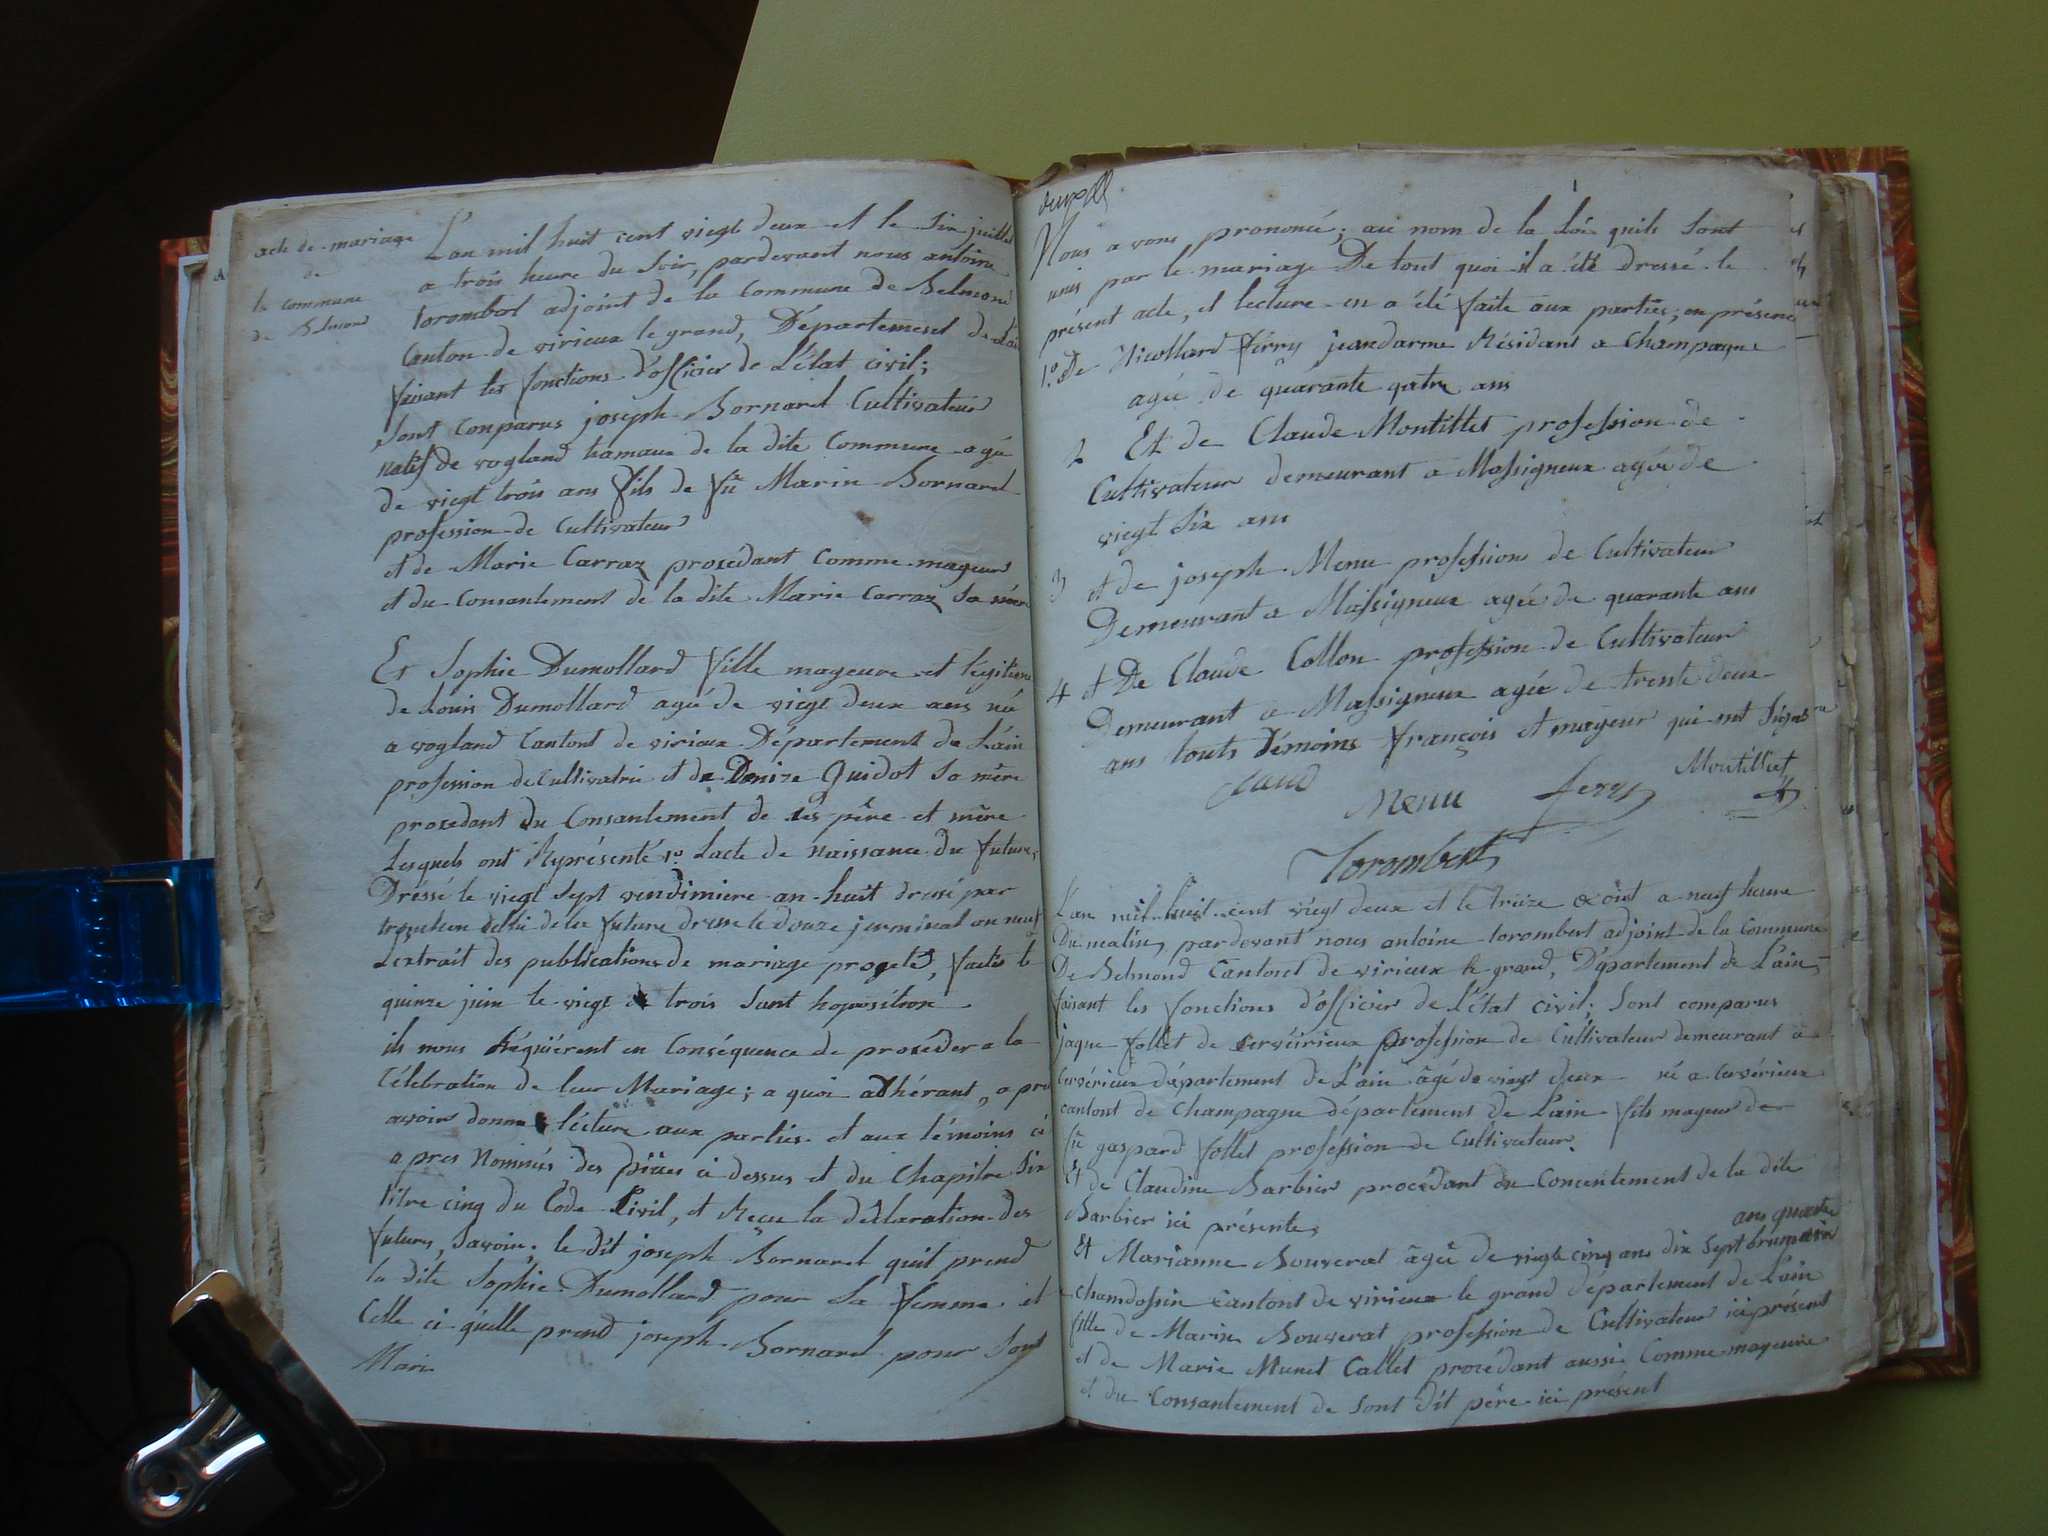 acte de mariage
de
la commune
de Belmond
L'an mil huit cent viegt deux et le six juillet
a trois heure du soir, pardevant nous antoine
torombert adjoint de la commune de Belmond
Canton de virieux le grand, Département de L'ain
faisant les fonctions d'officier de L'état civil;
sont Conparus joseph Bornarel Cultivateur
natif de vogland hamaux de la dite Commune agé
de viegt trois ans fils de fû Marin Bornarel
profession de Cultivateur
et de Marie Carraz procédant Comme mageur
et du Consantement de la dite Marie Carraz Sa mère
Et Sophie Dumollard fille mageure et legitime
de Louis Dumollard agé de viegt deux ans né
a vogland Cantont de virieux Département de L'ain
profession de Cultivatrie et de Denize Guidot Sa mère
procedant du Consantement de ses père et mère
Lesquels ont Représenté 1º Lacte de naissance du future,
Dréssé le viegt sept vendimiere an huit dressé par
celui de la future dresse le douze jerminal an neuf
Lextrait des publications de mariage progeté, faites le
quinze juin le viegt et trois sant hoposition
ils nous Réquièrent en Conséquence de procéder a la
Célebration de leur Mariage; a quoi adhérant, a pre
avoir donné lécture aux parties et aux témoins ci
a pres Nommés des pièces ci dessus et du Chapitre Six
titre cinq du Code Civil, et Reçue la déclaration des
futurs, Savoir; le dit joseph Bornarel quil prend
la dite Sophie Dumollard pour Sa femme et
Celle ci quelle prend joseph Bornarel pour Sont
Mari
Nous avons prononcé; au nom de la Loi quils Sont
unis par le mariage De tout quoi il a été dressé le
présent acte, et lecture en a été faite aux parties; en présence
1º. de Nicollard férry jeandarme Résidant a Champagne
agée de quarante qatre ans
2 Et de Claude Montillet profession de
Cultivateur demeurant a Massigneux agée de
viegt Six ans
3 et de joseph Menu profession de Cultivateur
Demeurant a Massigneux agée de quarante ans
4 et De Claude Collon profession de Cultivateur
Demeurant a Massigneux agée de trente deux
ans touts témoins françois et mageur qui ont Signé
Montillet
Menu ferry
Torombert
L'an mil huit cent viegt deux et le treize a neuf heure
Du matin, pardevant nous antoine torombert adjoint de la Commune
De Belmond Cantont de virieux le grand, Département de L'ain
faisant les fonctions d'officier de L'état civil; Sont comparus
jaque follet de cervéirieux profession de Cultivateur demeurant a
Cervérieux département de L'ain âgé de viegt deux né a Cervérieux
cantont de Champagne département de L'ain fils mageur de
fû gaspard follet profession de Cultivateur.
Et de Claudine Barbier procédant du Concentement de la dite
Barbier ici présente,
ans quatre
Et Marianne Bouverat âgée de viegt cinq ans dix sept brumaire
chamdossin cantont de virieux le grand département de L'ain
fille de Marin Bouverat profession de Cultivateur ici présent
et de Marie Munet Callet procédant aussi Comme mageure
et du Consantement de Sont dit père ici présent